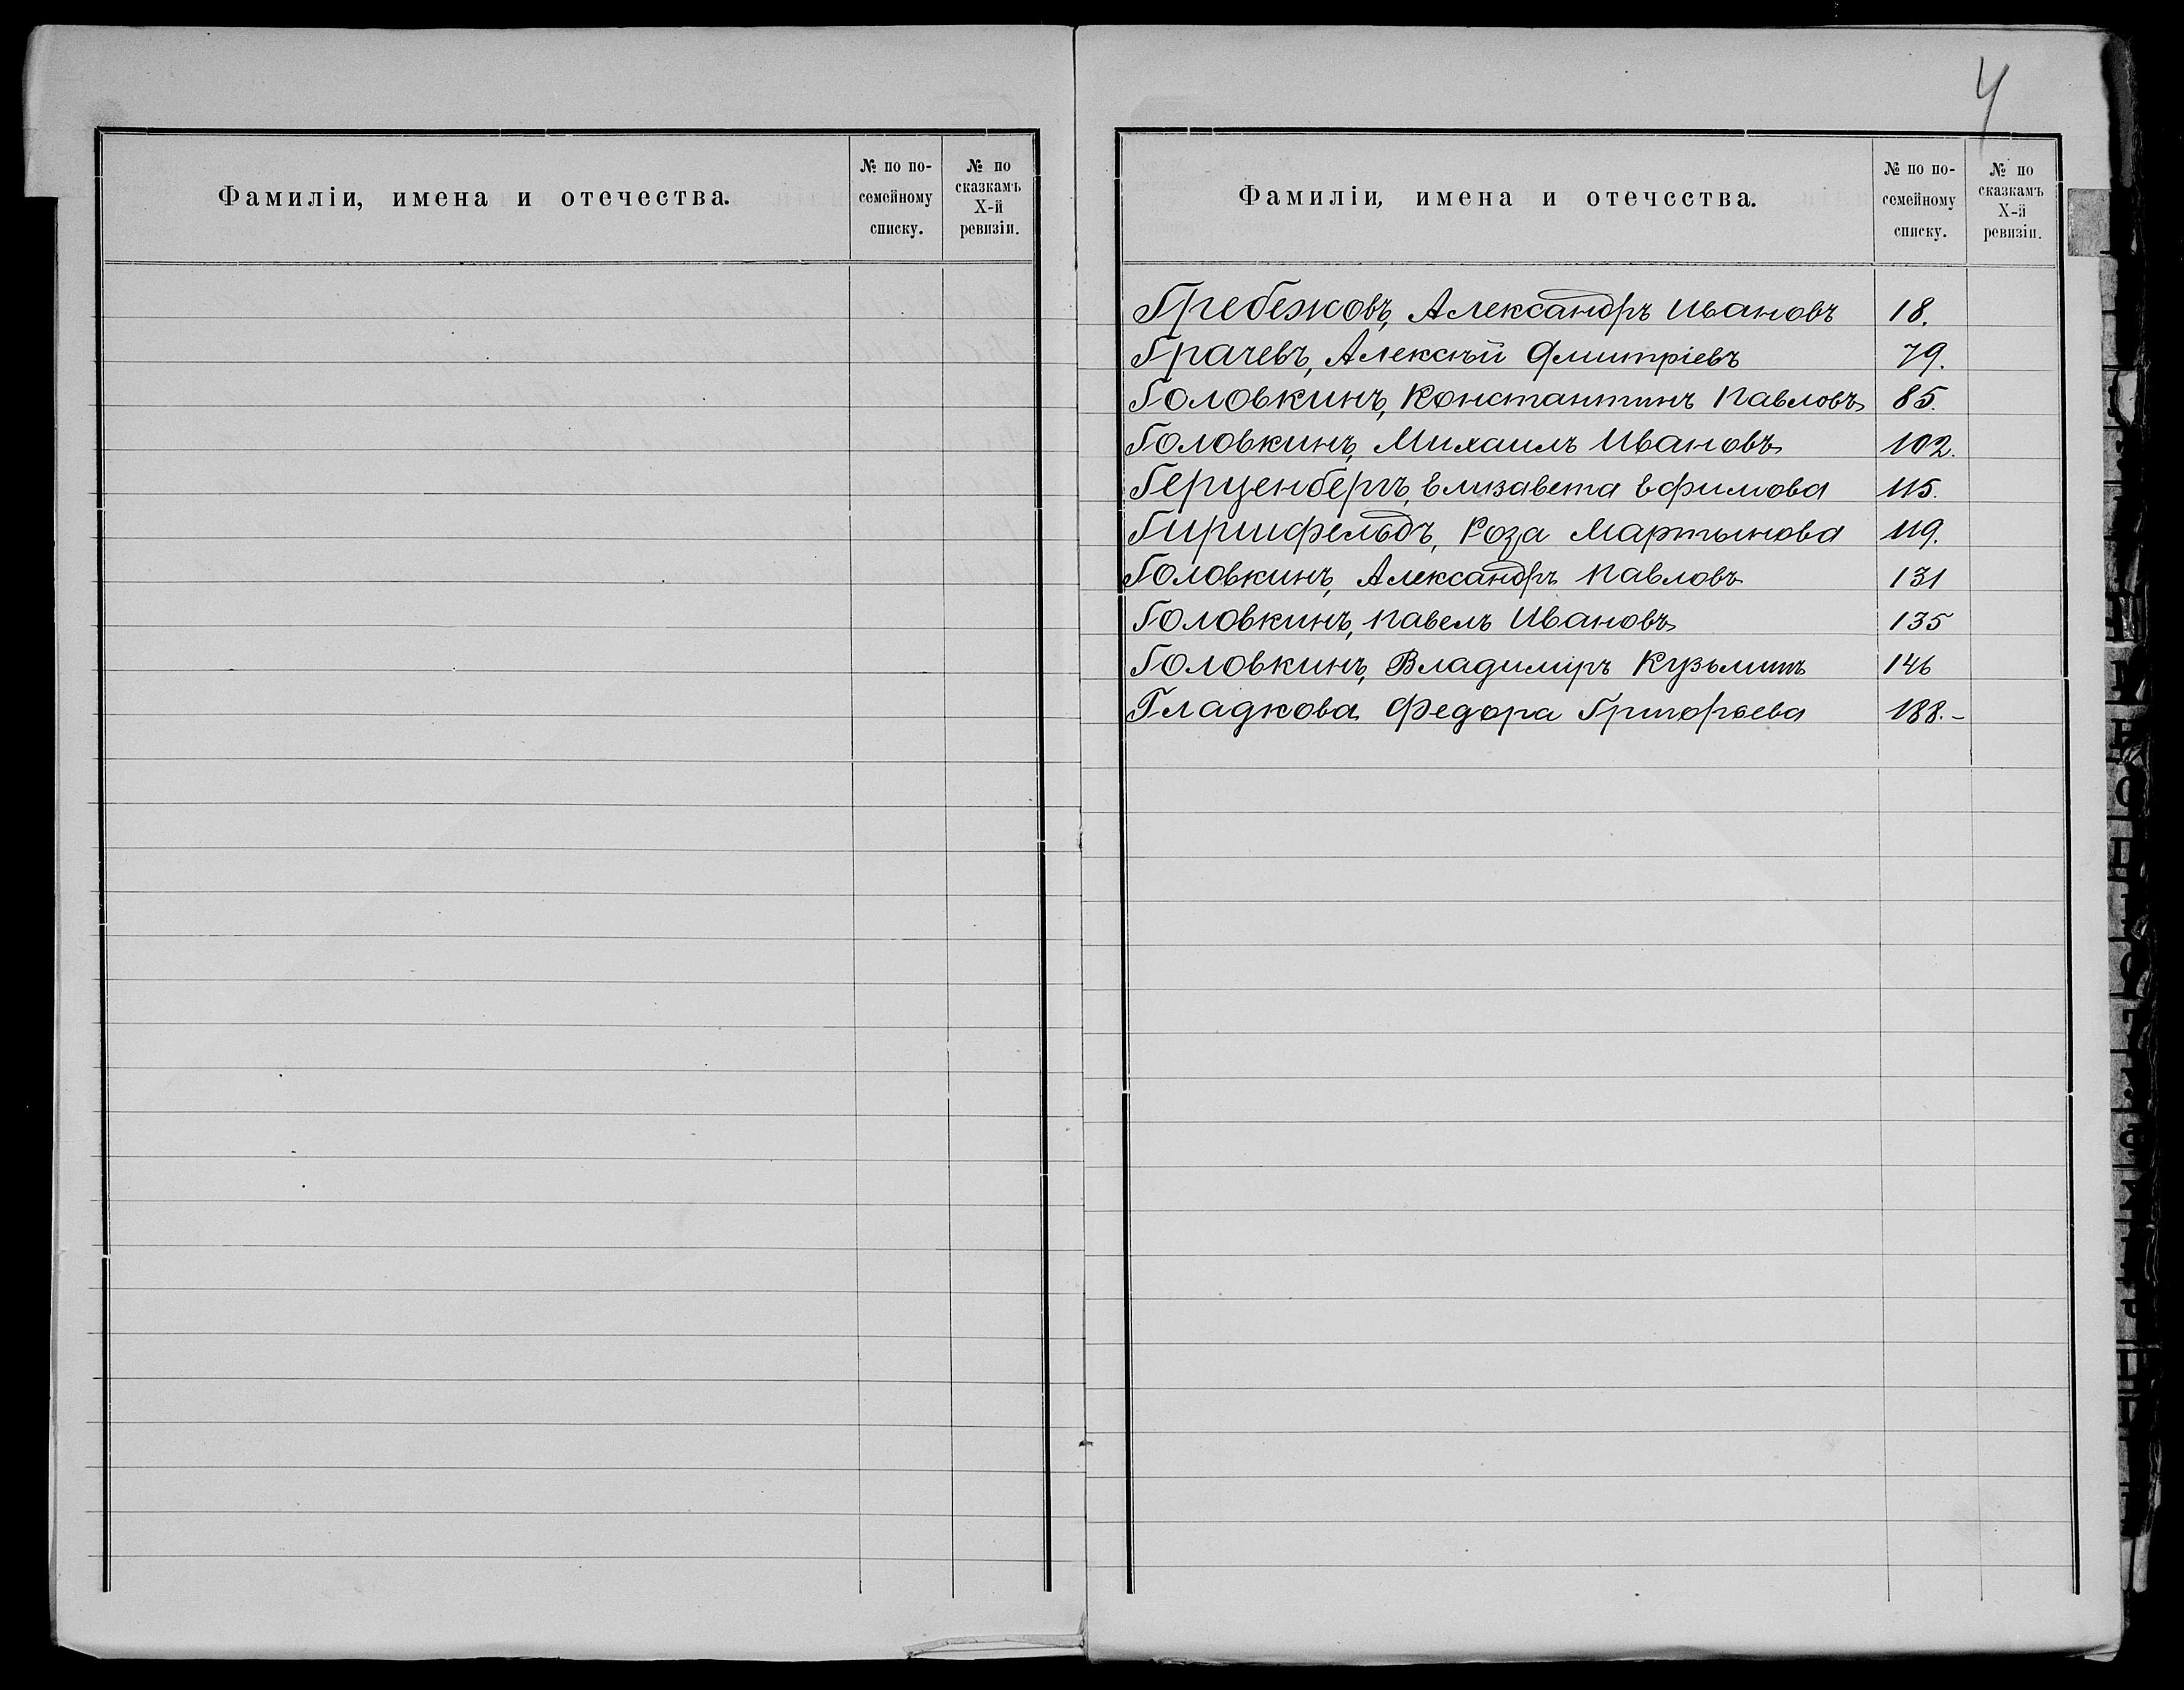 Фамиліи, имена и отечества.
№ по по-
семейному
списку.
№ по
сказкамъ
X-й
ревизіи.
4
Фамиліи, имена и отечества.
№ по по-
семейному
списку.
№ по
сказкамъ
X-й
ревизіи.
Гребежовъ, Александръ Ивановъ 18.
Грачевъ, Алексѣй Дмитріевъ 79.
Головкинъ, Константинъ Павловъ 85.
Головкинъ, Михаилъ Ивановъ 102.
Герценбергъ, Елизавета Ефимова 115.
Гиршфельдъ, Роза Мартынова 119.
Головкинъ, Александръ Павловъ 131
Головкинъ, Павелъ Ивановъ 135
Головкинъ, Владимiръ Кузьминъ 146
Гладкова Федора Григорьева 188.-